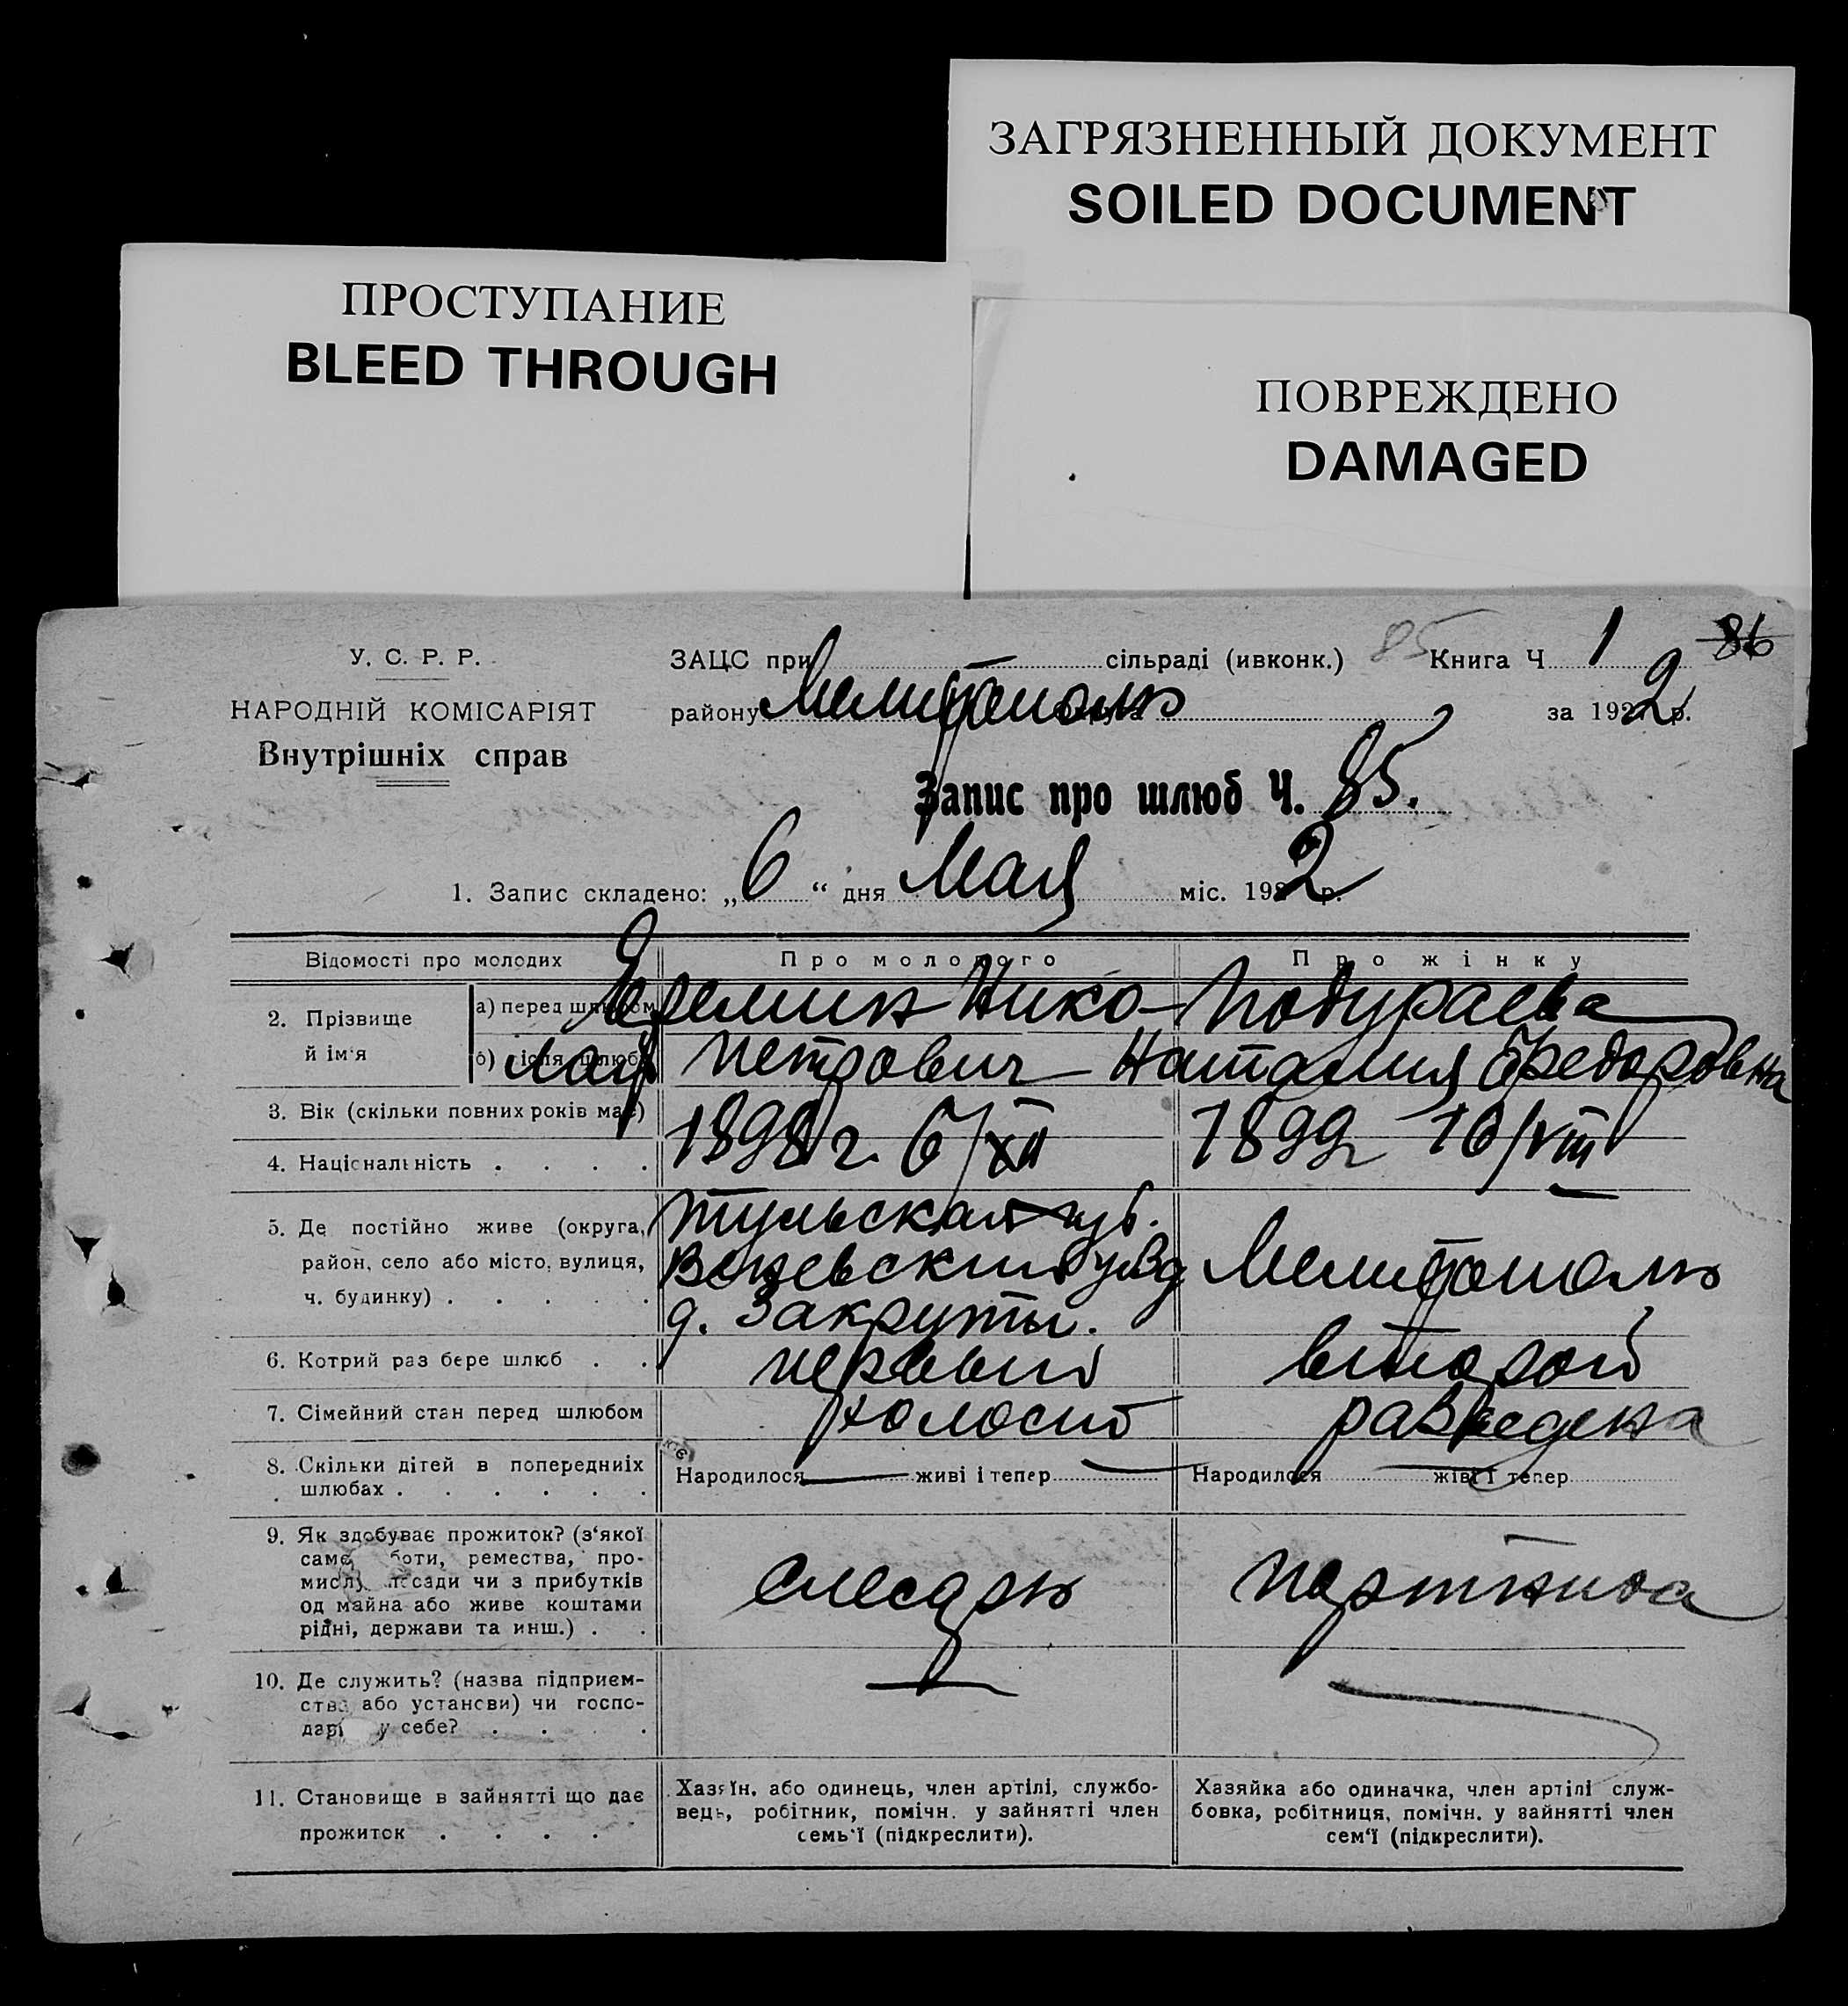 ЗАГРЯЗНЕННЫЙ ДОКУМЕНТ
SOILED DOCUMENT
ПРОСТУПАНИЕ
BLEED THROUGH
ПОВРЕЖДЕНО
DAMAGED
У. С. Р. Р.
НАРОДНІЙ КОМІСАРІЯТ
Внутрішніх справ
ЗАЦС при сільраді (ивконк.) 85 Книга Ч 1 86
району Мелитополь за 1922 р.
Запис про шлюб Ч. 85.
1. Запис складено: „6“ дня Мая міс. 1922 р.
Відомості про молодих Про молодого Про жінку
2. Прізвище й ім'я
а) перед шлюбом Еремин Нико- Подураева
б) після шлюбу лай Петрович Наталия Федоровна
3. Вік (скільки повних років має)
1898 г. 6/XII 1899 г 16/VIII
4. Національність . . . .
5. Де постійно живе (округа, Тульская губ.
район, село або місто, вулиця, уезд Мелитополь
ч. будинку) . . . . . д. Закруты.
6. Котрий раз бере шлюб . . первый второй
7. Сімейний стан перед шлюбом холост разведена
8. Скільки дітей в попередніх
шлюбах . . . . . . Народилося живі і тепер Народилося живі і тепер
9. Як здобуває прожиток? (з'якої
саме роботи, ремества, про-
мислу, посади чи з прибутків слесарь портниха
од майна або живе коштами
рідні, держави та инш.) . .
10. Де служить? (назва підприєм-
ства або установи) чи госпо-
дарює у себе? . . . .
11. Становище в зайнятті що дає
прожиток . . . .
Хазяїн, або одинець, член артілі, службо-
вець, робітник, помічн. у зайнятті член
семь'ї (підкреслити).
Хазяйка або одиначка, член артілі служ-
бовка, робітниця, помічн. у зайнятті член
сем'ї (підкреслити).